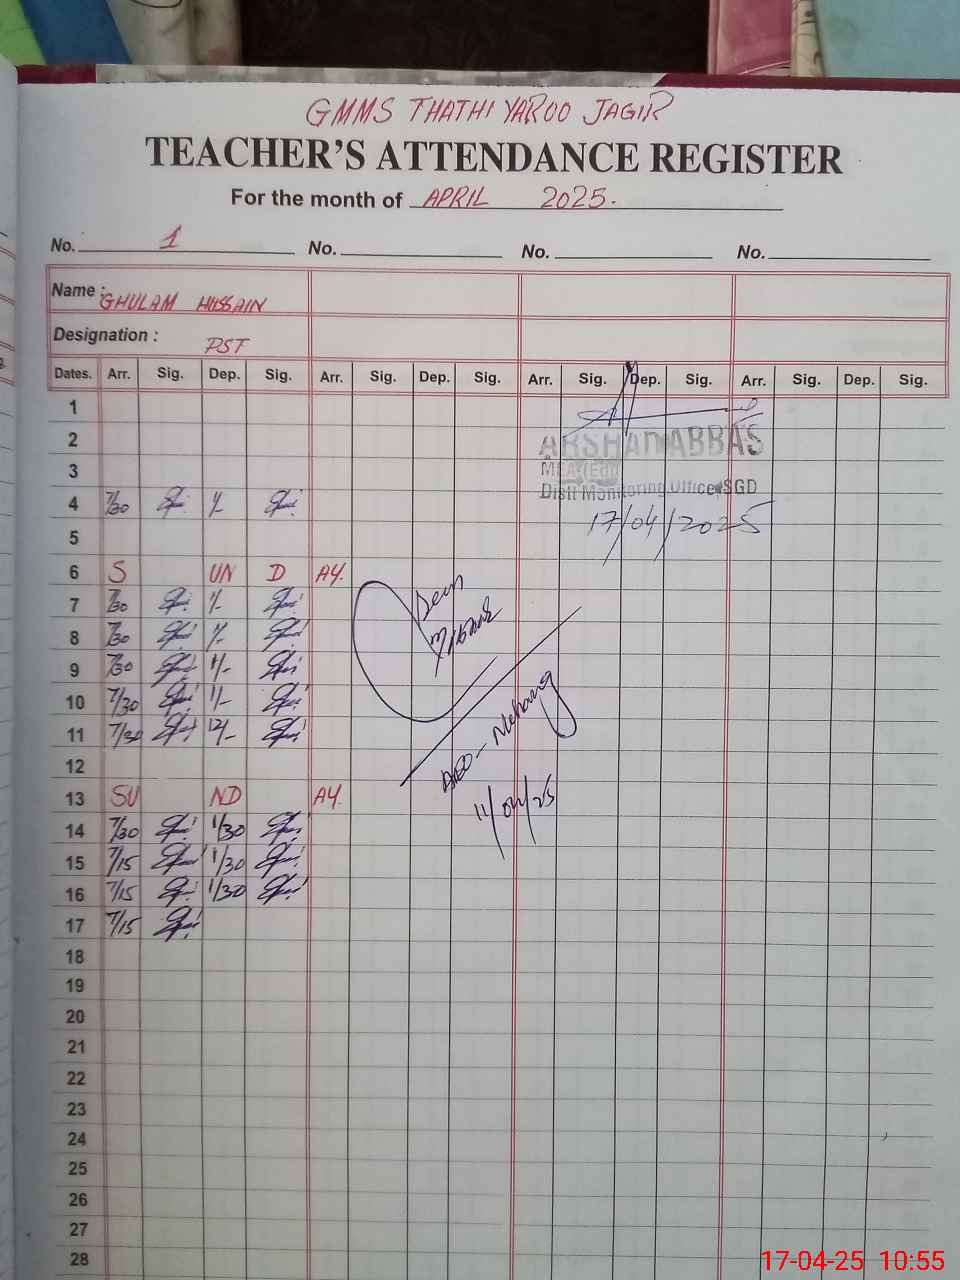 GMMS THATHI YAROO JAGIR
TEACHER'S ATTENDANCE REGISTER
For the month of APRIL 2025.
No. 1 No. No. No.
Name : GHULAM HUSSAIN
Designation : PST
Dates. Arr. Sig. Dep. Sig. Arr. Sig. Dep. Sig. Arr. Sig. Dep. Sig. Arr. Sig. Dep. Sig.
1
2
ARSHAD ABBAS
3
MEA (Edu)
Distt Monitoring Officer, SGD
4 7/30 1/-
17/04/2025
5
6 S UN D AY.
7 7/30 1/-
Seen
8 7/30 1/-
9 7/30 1/-
10 7/30 1/-
11 7/30 12/-
12
13 SU ND AY.
11/04/25
14 7/30 1/30
15 7/15 1/30
16 7/15 1/30
17 7/15
18
19
20
21
22
23
24
25
26
27
28
17-04-25 10:55